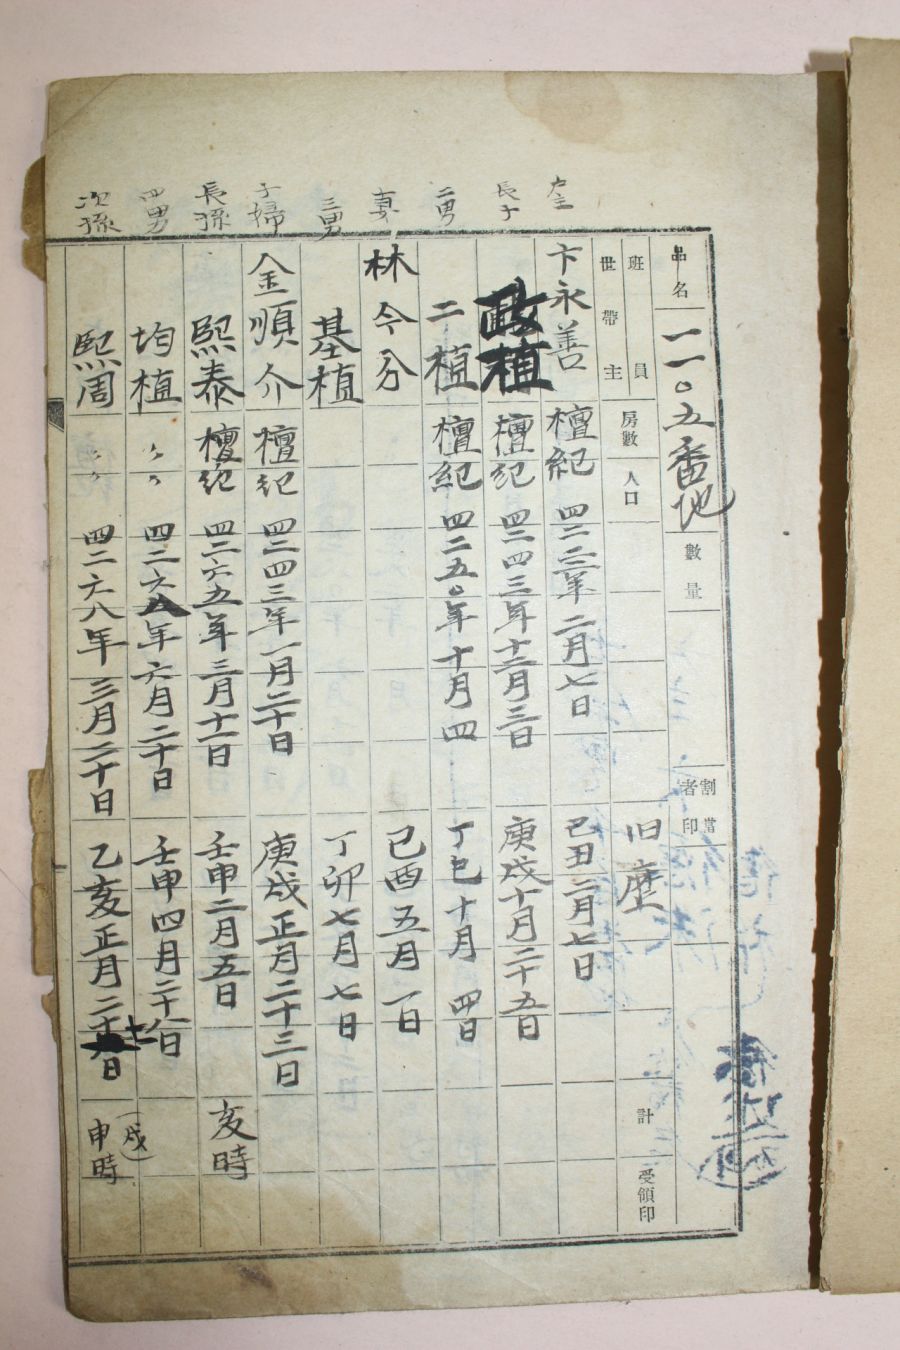 品名 一一〇五番地 數量 割當者印
班員 世帶主 房數 人口 旧歷 計 受領印
卞永善 檀紀 四二二二年 二月七日 己丑二月七日
長子 政植 檀紀 四二四三年十二月三日 庚戌十月二十五日
二男 二植 檀紀 四二五〇年十月四 丁巳十月四日
妻 林今分 己酉五月一日
三男 基植 丁卯七月七日
子婦 金順介 檀紀 四二四三年一月二十日 庚戌正月二十三日
長孫 熙泰 檀紀 四二六五年三月十一日 壬申二月五日 亥時
四男 均植 〃〃 四二六八年六月二十日 壬申四月二十八日 (戌)
次孫 熙周 〃〃 四二六八年三月二十日 乙亥正月二十 日 申時